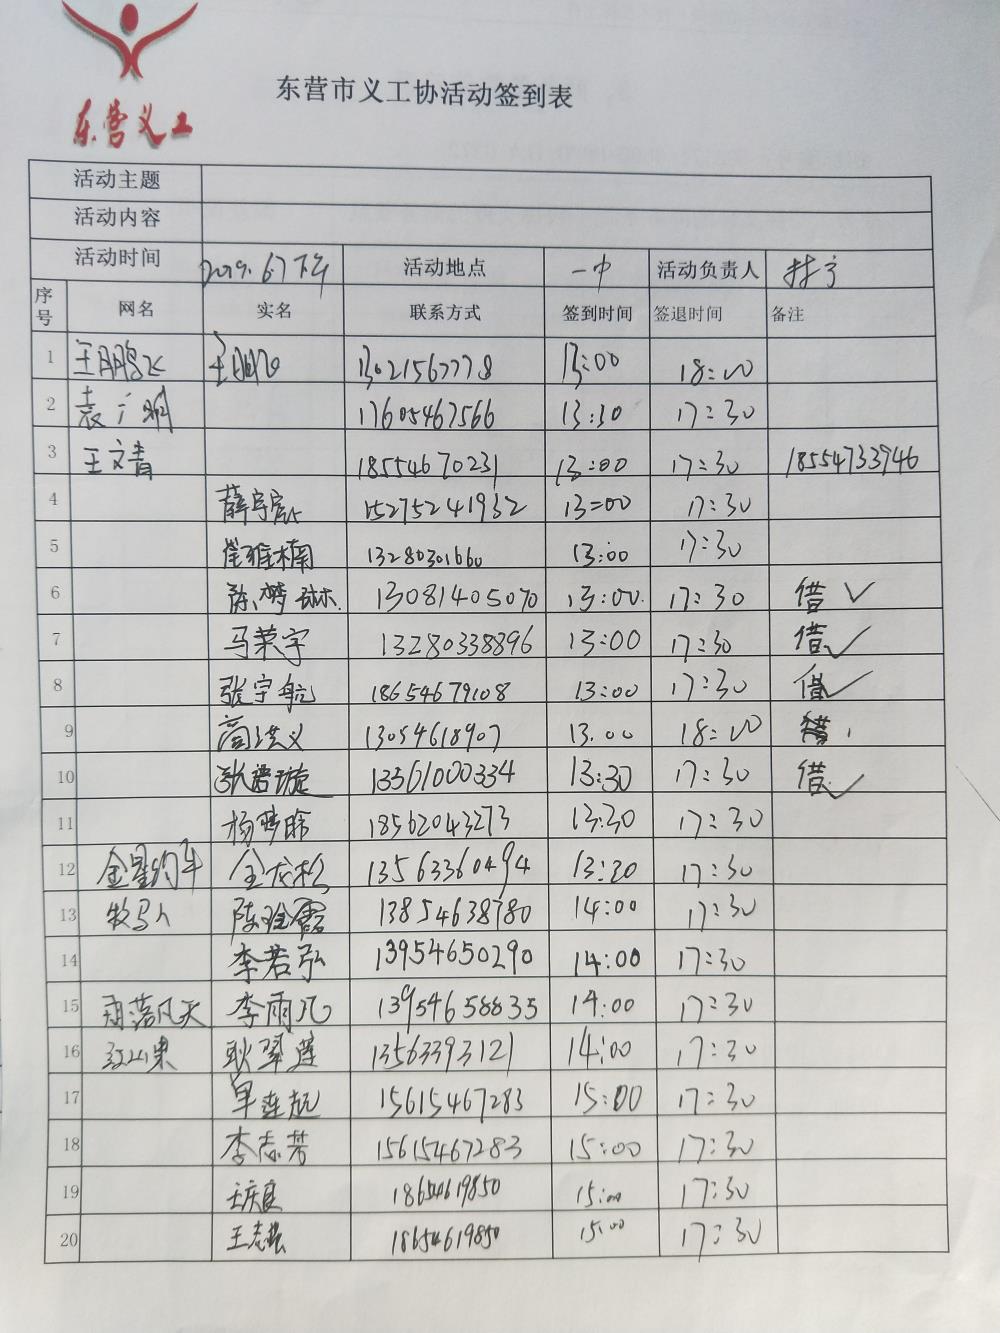 东营义工
东营市义工协活动签到表
活动主题
活动内容
活动时间 2019.6.7下午 活动地点 一中 活动负责人
序号 网名 实名 联系方式 签到时间 签退时间 备注
1 王鹏飞 王鹏飞 13021567778 13:00 18:00
2 袁广明 17605467566 13:30 17:30
3 王文青 18554670231 13:00 17:30 18554733946
4 15275241932 13:00 17:30
5 崔雅楠 13280301660 13:00 17:30
6 陈梦琳 13081405070 13:00 17:30 借✓
7 马荣宇 13280338896 13:00 17:30 借✓
8 张宇航 18654679108 13:00 17:30 借✓
9 闫洪义 13054618907 13:00 18:00
10 张君璇 13561000334 13:30 17:30 借✓
11 杨梦晗 18562043273 13:30 17:30
12 金星的牛 金龙松 13563360494 13:30 17:30
13 牧马人 陈 霞 13854638780 14:00 17:30
14 李若弘 13954650290 14:00 17:30
15 雨落风天 李雨凡 13954658835 14:00 17:30
16 红山果 耿翠莲 13563393121 14:00 17:30
17 单连航 15615467283 15:00 17:30
18 李志芳 15615467283 15:00 17:30
19 王庆良 18654619850 15:00 17:30
20 王志 18654619850 15:00 17:30